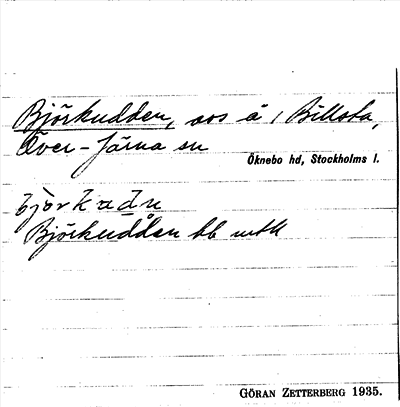 Björkudden, sos å 1 Billsta,
Över-Järna sn
Öknebo hd, Stockholms l.
Björkudden bb mtK
GÖRAN ZETTERBERG 1935.